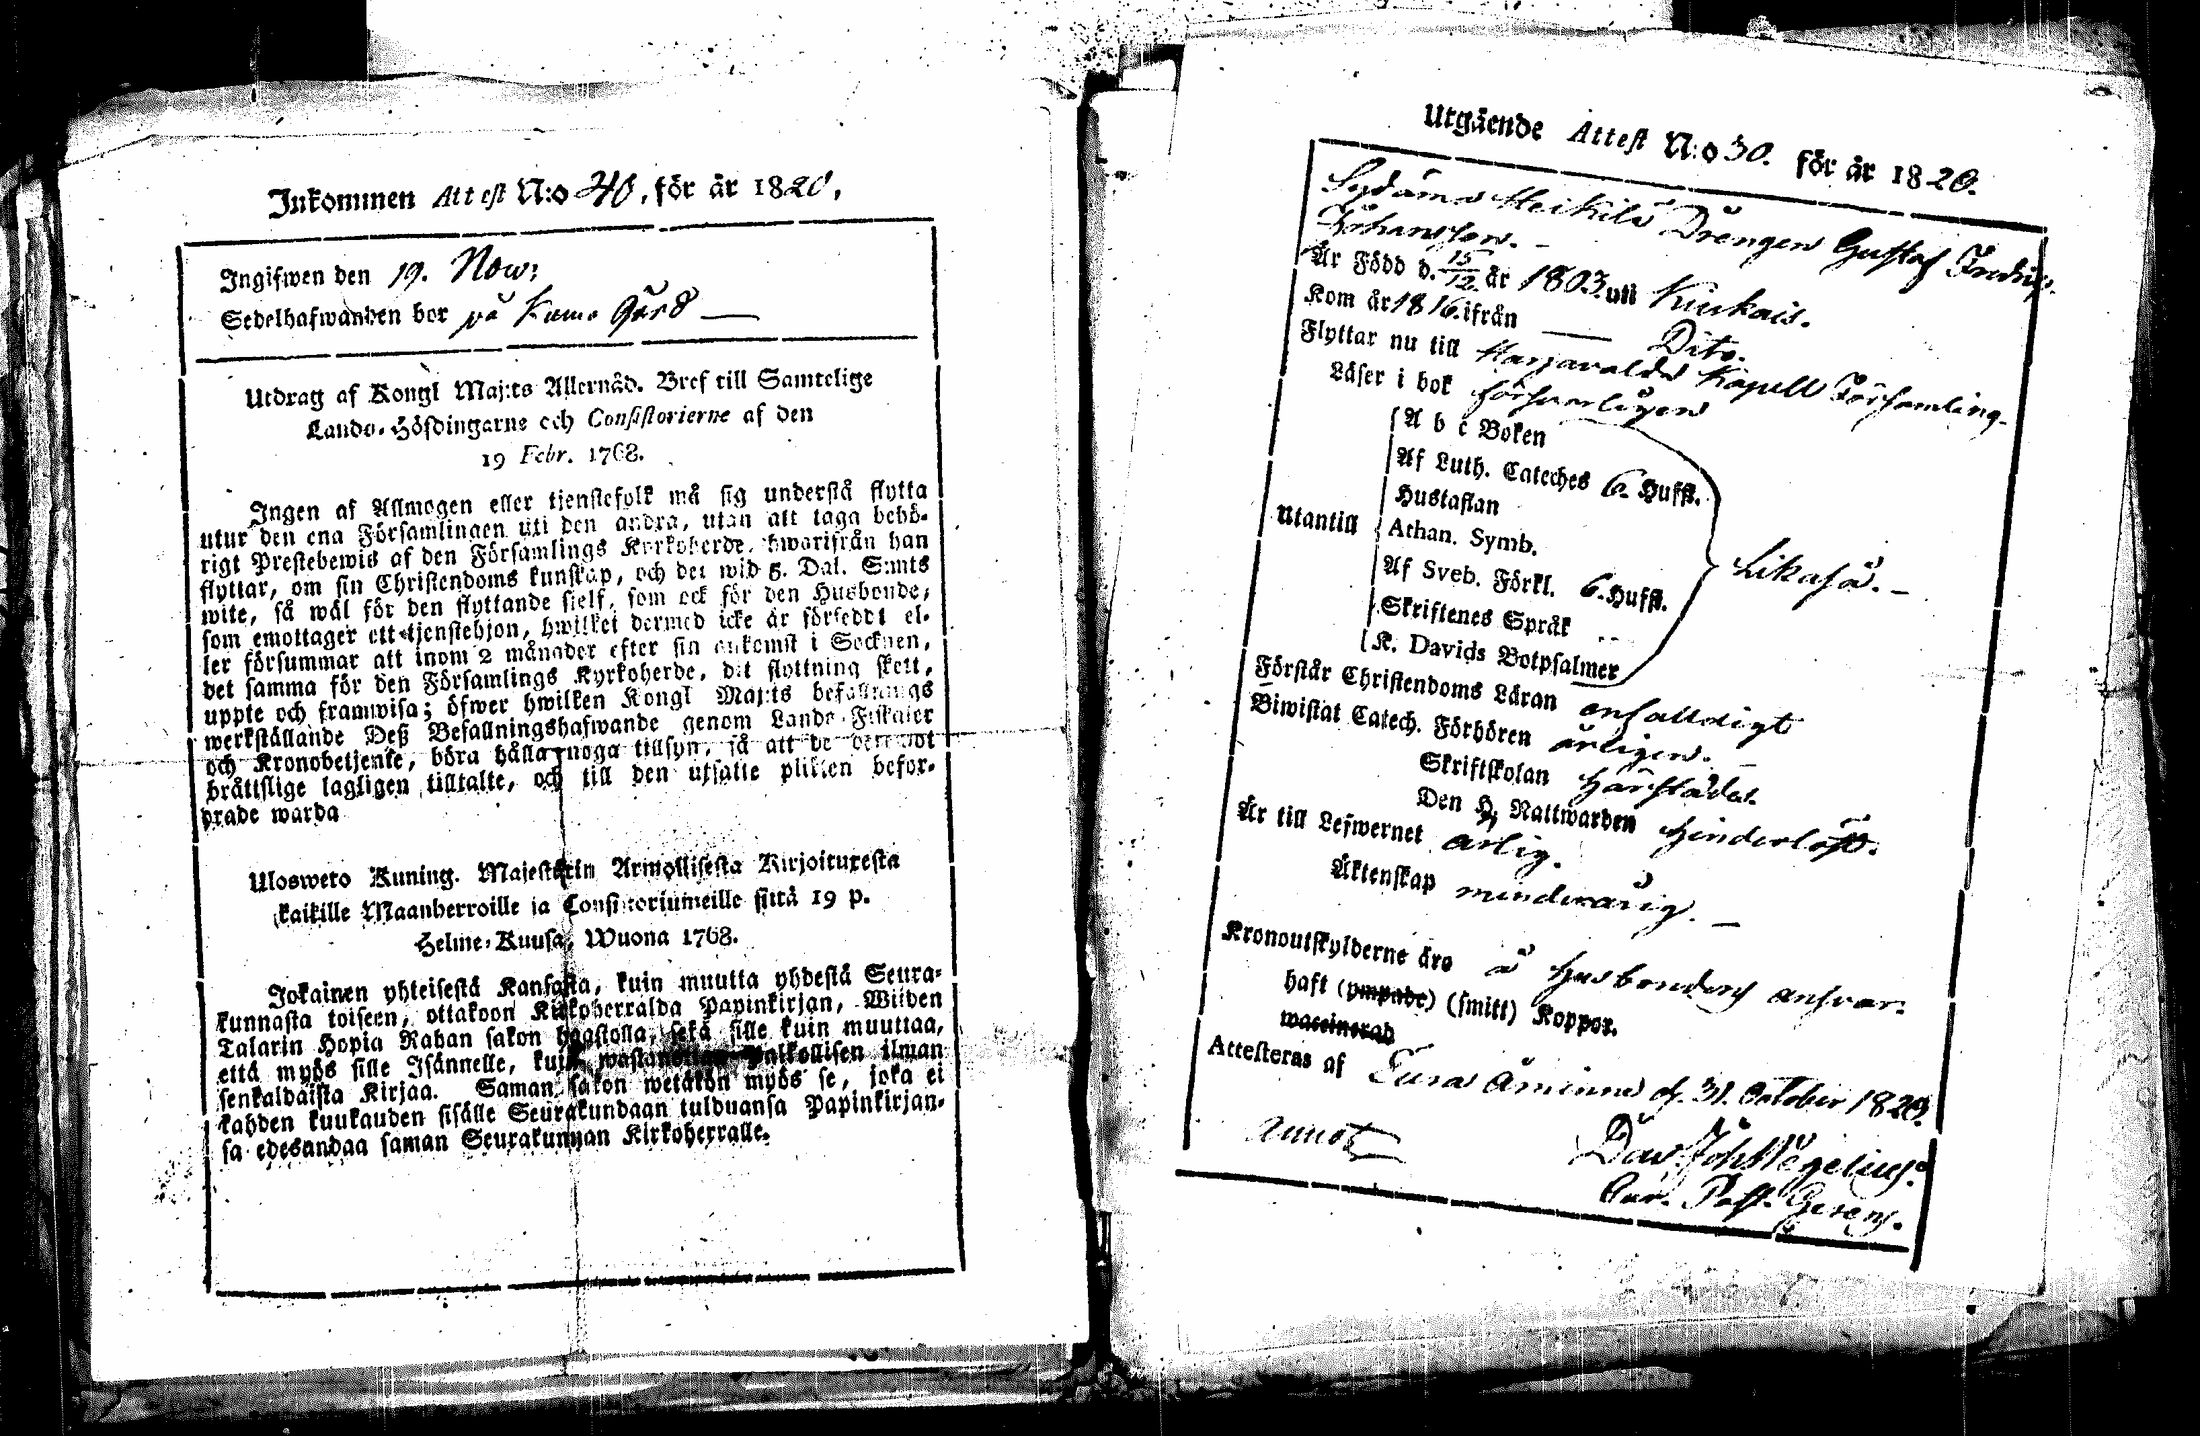 Inkommen Attest N:o 40, för år 1820,
Ingifwen den 19. Now:
Sedelhafwanden bor på Kumo Gård —
Utdrag af Kongl Maj:ts Allernåd. Bref till Samtelige
Lands-Höfdingarne och Consistorierne af den
19 Febr. 1768.
Ingen af Allmogen eller tjenstefolk må sig understå flytta
utur den ena Församlingen uti den andra, utan att taga behö-
rigt Prestebewis af den Församlings Kyrkoherde, hwarifrån han
flyttar, om sin Christendoms kunskap, och det wid 5. Dal. S:mts
wite, så wäl för den flyttande sielf, som ock för den Husbonde,
som emottager ett tjenstehjon, hwilket dermed icke är förseddt el-
ler försummar att inom 2 månader efter sin ankomst i Socknen,
det samma för den Församlings Kyrkoherde, dit flyttning skett,
uppte och framwisa; öfwer hwilken Kongl Maj:ts befallnings
werkställande Deß Befallningshafwande genom Lands-Fiskaler
och Kronobetjente, böra hålla noga tillsyn, så att de deremot
bråttslige lagligen tilltalte, och till den utsatte plikten befor-
drade warda
Ulosweto Kuning. Majestetin Armollisesta Kirjoituxesta
kaikille Maanherroille ja Consistoriumeille siitä 19 p.
Helme-Kuusa, Wuona 1768.
Jokainen yhteisestä Kansasta, kuin muutta yhdestä Seura-
kunnasta toiseen, ottakoon Kirkoherralda Papinkirjan, Wiiden
Talarin Hopia Rahan sakon haastolla, sekä sille kuin muuttaa,
että myös sille Isännelle, kuin wastanottaa Palkollisen ilman
senkaldaista Kirjaa. Saman sakon wetäkön myös se, joka ei
kahden kuukauden sisälle Seurakundaan tulduansa Papinkirjan-
sa edesandaa saman Seurakunnan Kirkoherralle.
Utgående Attest N:o 30. för år 1820.
Sydämä Heikilä Drengen Gustaf Fredric
Johansson. —
Är Född d. 15/12 år 1803. uti Kiukais.
Kom år 1816. ifrån — Dito.
Flyttar nu till Harjavalda Kapell Församling.
Läser i bok försvarligen
Utantill
A b c Boken
Af Luth. Cateches 6. Hufst.
Hustaflan
Athan. Symb.
Af Sveb. Förkl. 6. Hufst.
Skriftenes Språk
K. Davids Botpsalmer
Likaså. —
Förstår Christendoms Läran enfalldigt
Biwistat Catech. Förhören årligen. —
Skriftskolan härstädes.
Den H. Nattwarden
Är till Lefwernet ärlig. hinderlöst.
Äktenskap minderårig. —
Kronoutskylderne äro å Husbondens ansvar.
haft (ympade) (smitt) Koppor.
waccinerad
Attesteras af Eura Åminne d. 31. October 1820.
Dav. Joh. Hägelius.